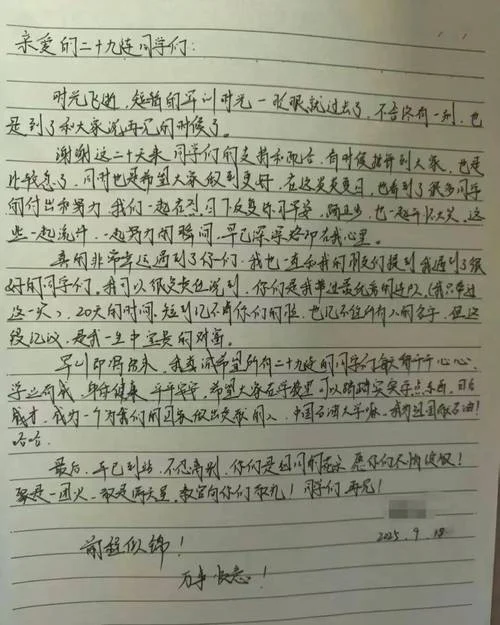 亲爱的二十九连同学们:
时光飞逝,短暂的军训时光一眨眼就过去了,不舍终有一别,也
是到了和大家说再见的时候了。
谢谢这二十天来同学们的支持和配合,有时候批评到大家,也是
比较急了,同时也是希望大家做到更好,在这炎炎夏日,也看到了很多同学
的付出和努力,我们一起在烈日下反复练习军姿,踢正步,也一起开怀大笑,这
些一起流汗,一起努力的瞬间,早已深深烙印在我心里。
真的非常幸运遇到了你们,我也一直和我的朋友们提到我遇到了很
好的同学们,我可以很坚定地说到,你们是我带过最优秀的连队(我只带过
这一次),20天的时间,短到记不清你们的脸,也记不住所有人的名字,但这
段记忆,是我一生中宝贵的财富。
军训即将结束,我真诚希望所有二十九连的同学们每天都开开心心,
学业有成,身体健康,平平安安,希望大家在学校里可以踏踏实实学点东西,日后
成才,成为一个对我们的国家做出贡献的人,中国石油大学嘛,我为祖国献石油!
哈哈。
最后,军已到站,不忍离别,你们是祖国的花朵,愿你们大胆绽放!
聚是一团火,散是满天星,教官向你们敬礼!同学们,再见!
2025.9.18
前程似锦!
万事胜意!